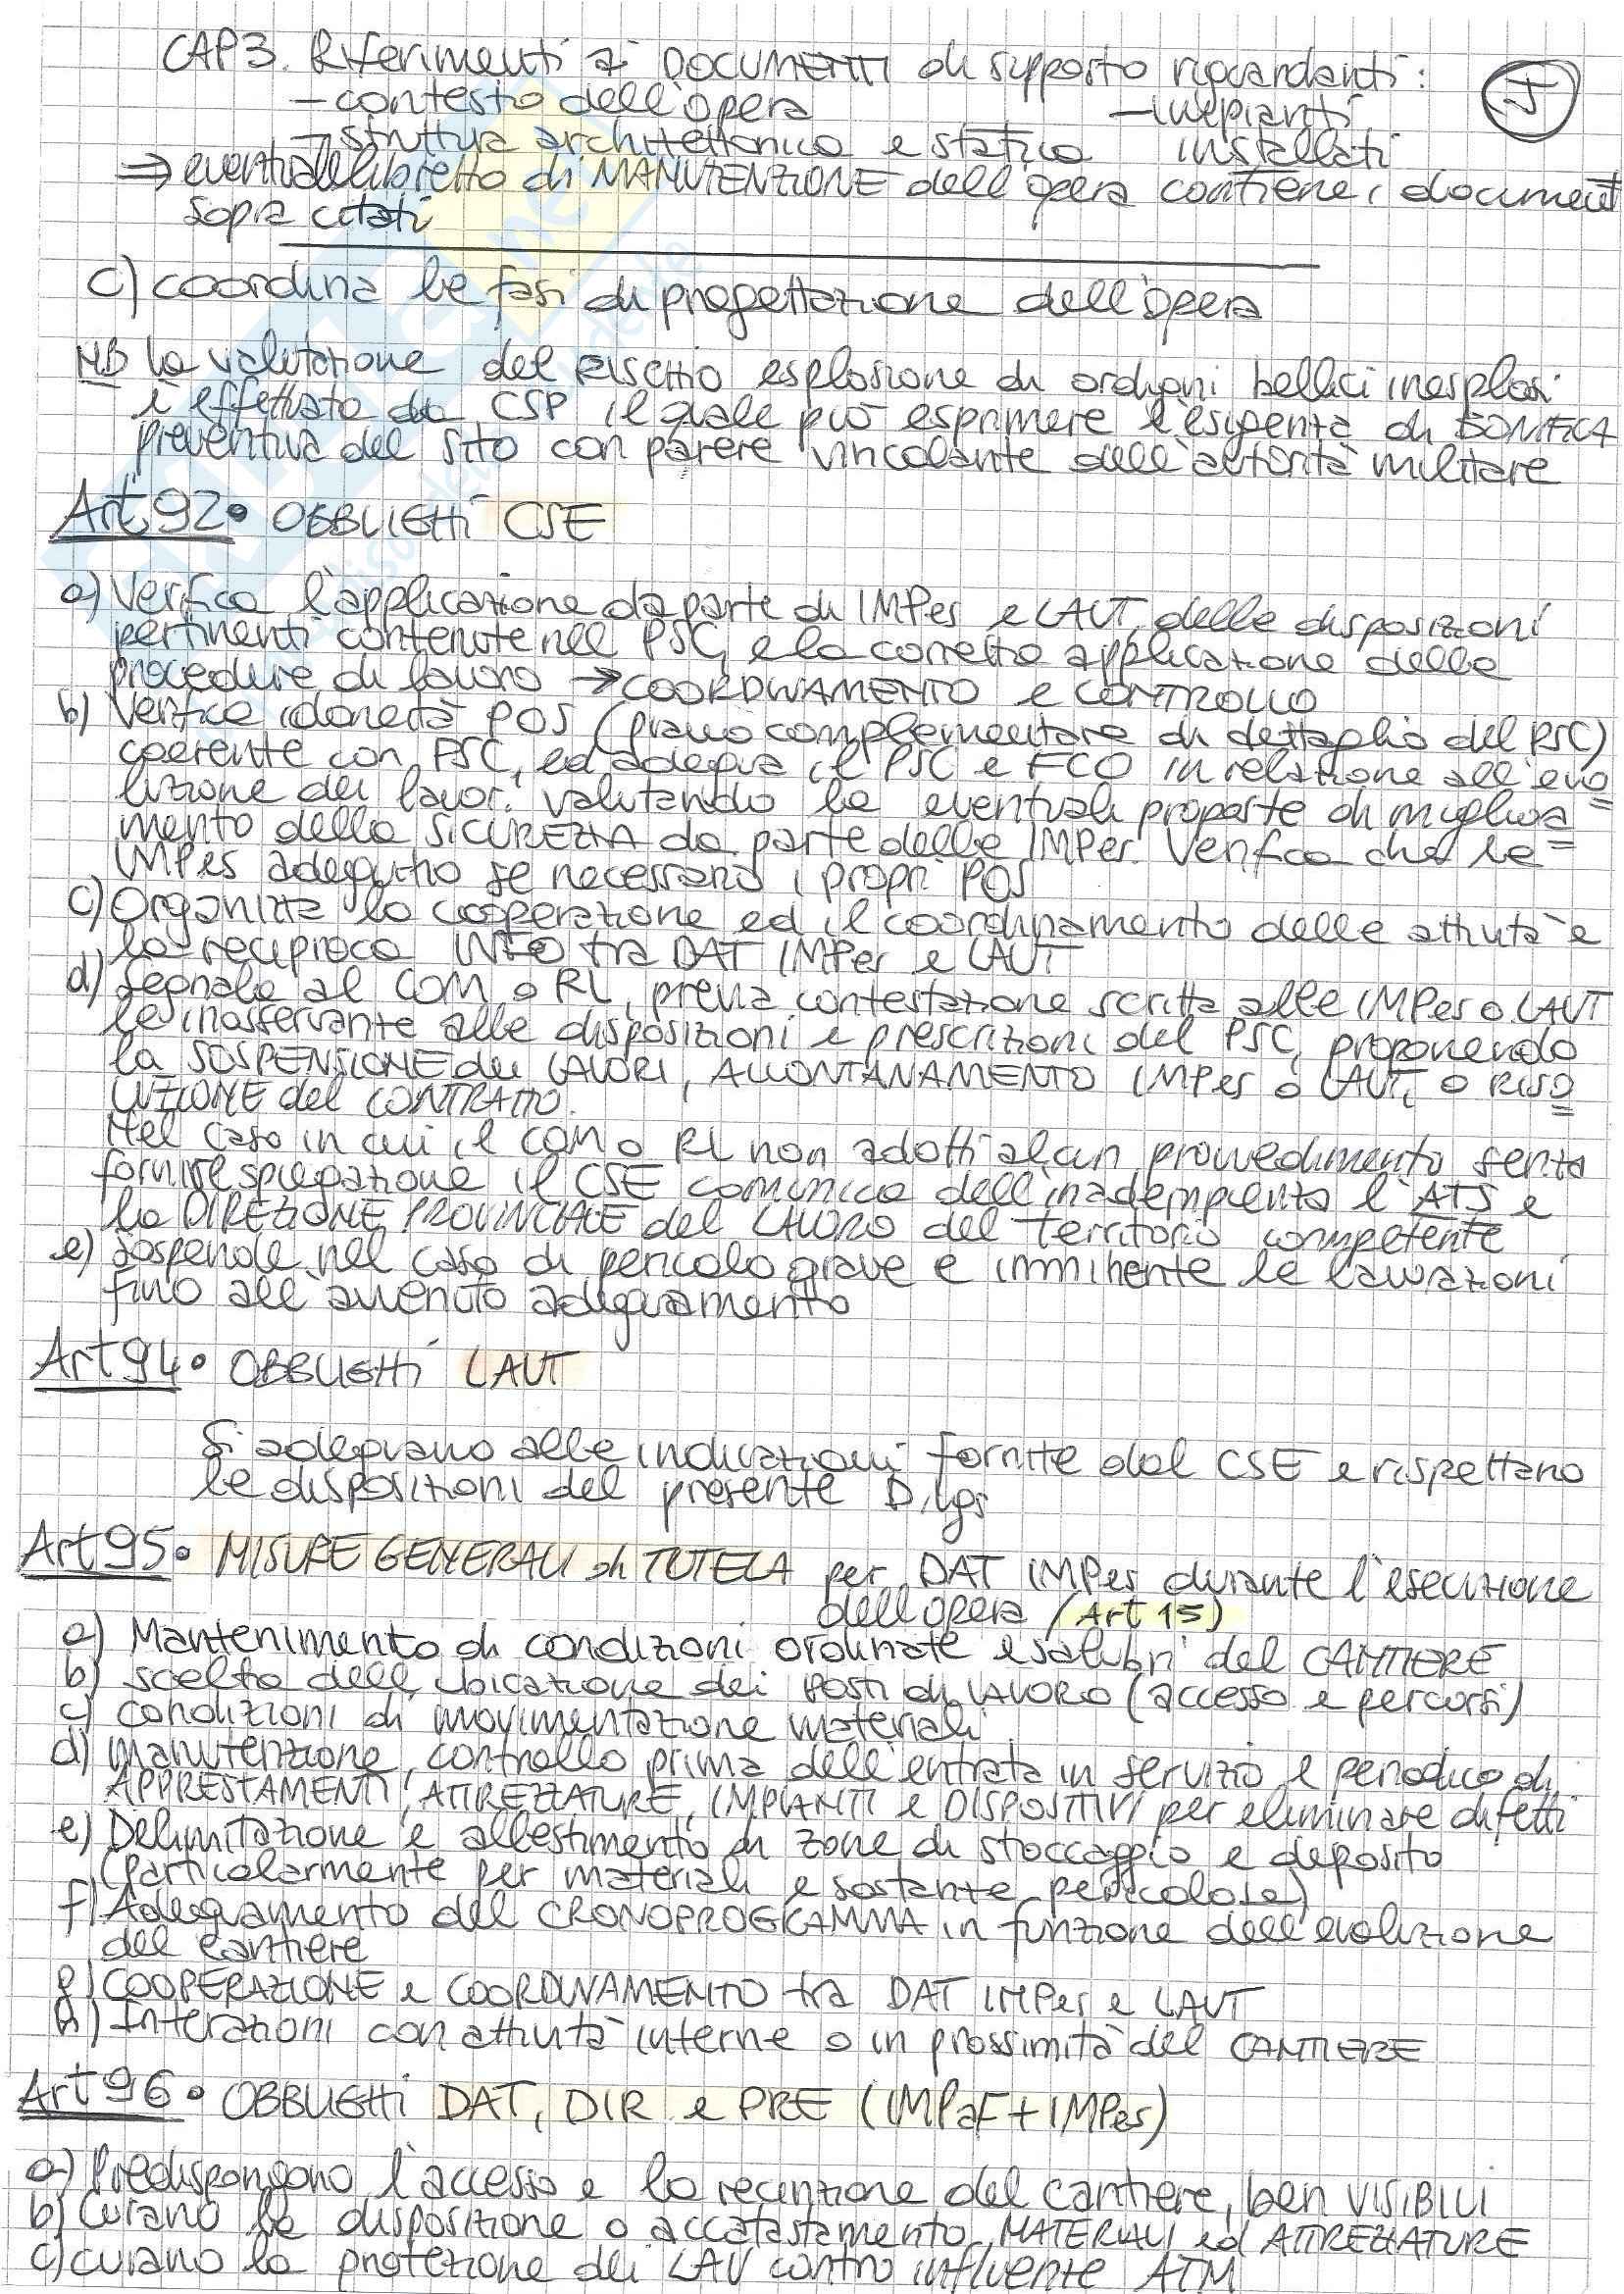 CAP3. Riferimenti ai DOCUMENTI di supporto riguardanti:
- contesto dell'opera - impianti
- struttura architettonica e statica installati
⇒ eventuale libretto di MANUTENZIONE dell'opera contiene i document
sopra citati
c) coordina le fasi di progettazione dell'opera
NB la valutazione del RISCHIO esplosione di ordigni bellici inesplosi
è effettuata da CSP il quale può esprimere l'esigenza di BONIFICA
preventiva del sito con parere vincolante dell'autorità militare
Art 92• OBBLIGHI CSE
a) Verifica l'applicazione da parte di IMPes e LAUT, delle disposizioni
pertinenti contenute nel PSC, e la corretta applicazione delle
procedure di lavoro → COORDINAMENTO e CONTROLLO
b) Verifica idoneità POS (piano complementare di dettaglio del PSC)
coerente con PSC, ed adegua il PSC e FCO in relazione all'evo
luzione dei lavori valutando le eventuali proposte di migliora=
mento della SICUREZZA da parte delle IMPes. Verifica che le=
IMPes adeguino se necessario i propri POS
c) Organizza la cooperazione ed il coordinamento delle attività e
la reciproca INFO tra DAT IMPes e LAUT
d) Segnala al COM o RL, previa contestazione scritta alle IMPes o LAUT
le inosservanze alle disposizioni e prescrizioni del PSC, proponendo
la SOSPENSIONE dei LAVORI, ALLONTANAMENTO IMPes o LAUT, o RISO
LUZIONE del CONTRATTO.
Nel caso in cui il COM o RL non adotti alcun provvedimento senza
fornire spiegazione il CSE comunica dell'inadempienza l'ATS e
la DIREZIONE PROVINCIALE del LAVORO del territorio competente
e) Sospende nel caso di pericolo grave e imminente le lavorazioni
fino all'avvenuto adeguamento
Art 94• OBBLIGHI LAUT
Si adeguano alle indicazioni fornite dal CSE e rispettano
le disposizioni del presente D.lgs
Art 95• MISURE GENERALI di TUTELA per DAT IMPes durante l'esecuzione
dell'opera (Art 15)
a) Mantenimento di condizioni ordinate e salubri del CANTIERE
b) scelta dell'ubicazione dei POSTI di LAVORO (accesso e percorsi)
c) condizioni di movimentazione materiali
d) manutenzione, controllo prima dell'entrata in servizio e periodico di
APPRESTAMENTI, ATTREZZATURE, IMPIANTI e DISPOSITIVI per eliminare difetti
e) Delimitazione e allestimento di zone di stoccaggio e deposito
(particolarmente per materiali e sostanze pericolose)
f) Adeguamento del CRONOPROGRAMMA in funzione dell'evoluzione
del cantiere
g) COOPERAZIONE e COORDINAMENTO tra DAT IMPes e LAUT
h) Interazioni con attività interne o in prossimità del CANTIERE
Art 96• OBBLIGHI DAT, DIR e PRE (IMPaF + IMPes)
a) Predispongono l'accesso e la recinzione del cantiere, ben VISIBILI
b) Curano la disposizione o accatastamento MATERIALI ed ATTREZZATURE
c) curano la protezione dei LAV contro influenze ATM